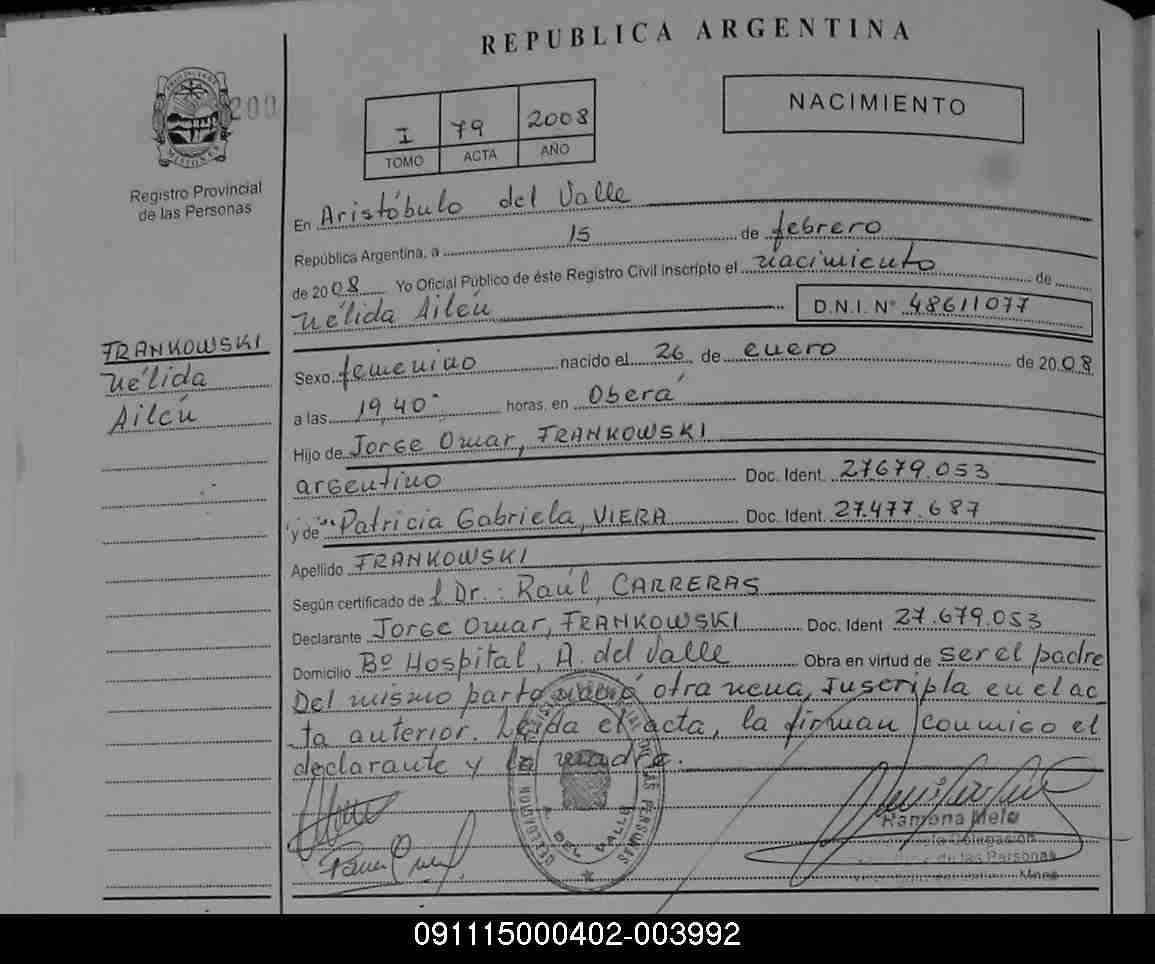 REPUBLICA ARGENTINA
200
MISIONES
Registro Provincial
de las Personas
I 79 2008
TOMO ACTA AÑO
NACIMIENTO
En Aristóbulo del Valle
República Argentina, a 15 de febrero
de 2008 Yo Oficial Público de éste Registro Civil inscripto el nacimiento de
Nélida Ailén D.N.I. N° 48611077
FRANKOWSKI
Nélida
Ailén
Sexo femenino nacido el 26 de enero de 2008
a las 19,40 horas, en Oberá
Hijo de Jorge Omar, FRANKOWSKI
argentino Doc. Ident. 27679.053
y de Patricia Gabriela, VIERA Doc. Ident. 27.477.687
Apellido FRANKOWSKI
Según certificado de l Dr.: Raúl, CARRERAS
Declarante Jorge Omar, FRANKOWSKI Doc. Ident 27.679.053
Domicilio Bº Hospital, A. del Valle Obra en virtud de ser el padre
Del mismo parto nació otra nena, Inscripta en el ac
ta anterior. Leída el acta, la firman conmigo el
declarante y la madre.
A. DEL VALLE
Ramona Melo
Delegación
de las Personas
Mnes
091115000402-003992